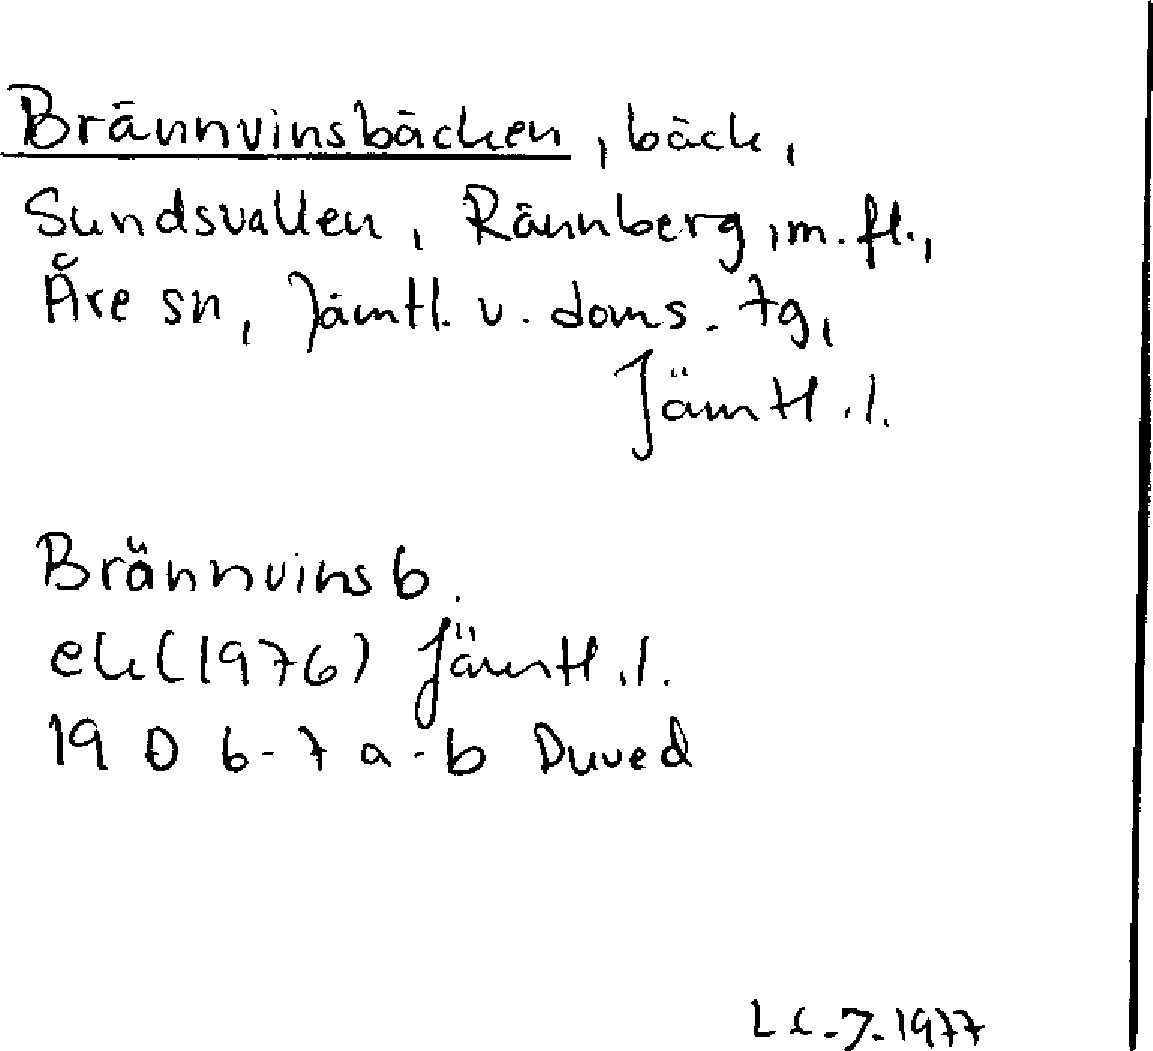 Brännvinsbäcken, bäck,
Sundsvallen, Rännberg, m. fl.,
Åre sn, Jämtl. v. doms. tg,
Jämtl. l.
Brännvinsb.
ek (1976) Jämtl. l.
19 D 6-7 a-b Duved
1977